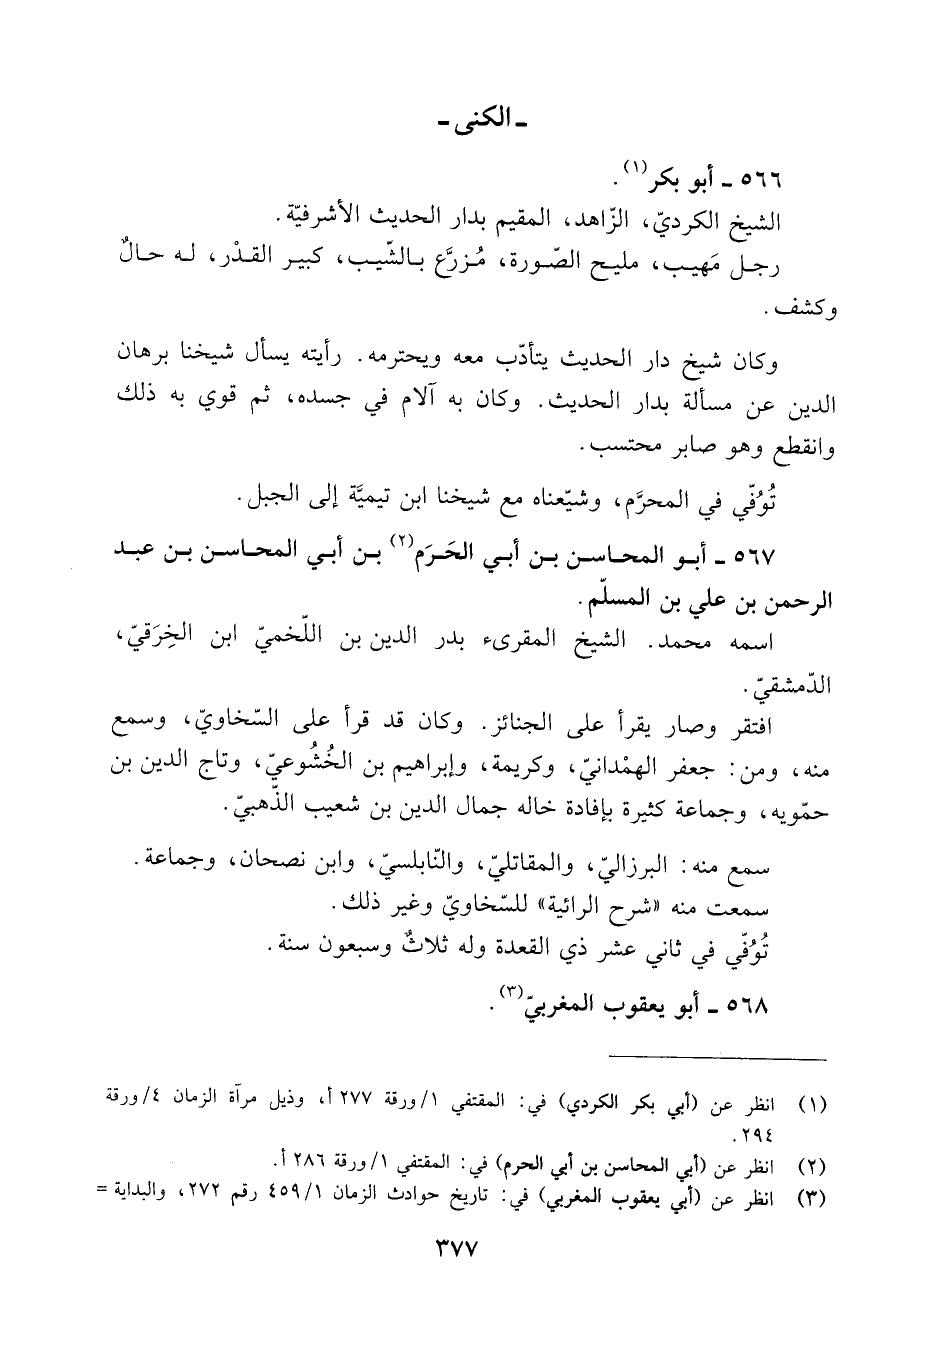 ـ الكنى ـ
٥٦٦ ـ أبو بكر(١).
الشيخ الكرديّ، الزّاهد، المقيم بدار الحديث الأشرفيّة.
رجل مَهيب، مليح الصّورة، مُزرَّع بالشّيب، كبير القدْر، له حالٌ
وكشف.
وكان شيخ دار الحديث يتأدّب معه ويحترمه. رأيته يسأل شيخنا برهان
الدين عن مسألة بدار الحديث. وكان به آلام في جسده، ثم قوي به ذلك
وانقطع وهو صابر محتسب.
تُوُفّي في المحرَّم، وشيّعناه مع شيخنا ابن تيميَّة إلى الجبل.
٥٦٧ ـ أبو المحاسن بن أبي الحَرَم(٢) بن أبي المحاسن بن عبد
الرحمن بن علي بن المسلّم.
اسمه محمد. الشيخ المقرىء بدر الدين بن اللّخميّ ابن الخِرَقيّ،
الدّمشقيّ.
افتقر وصار يقرأ على الجنائز. وكان قد قرأ على السّخاويّ، وسمع
منه، ومن: جعفر الهمْدانيّ، وكريمة، وإبراهيم بن الخُشُوعيّ، وتاج الدين بن
حمّويه، وجماعة كثيرة بإفادة خاله جمال الدين بن شعيب الذّهبيّ.
سمع منه: البرزاليّ، والمقاتليّ، والنّابلسيّ، وابن نصحان، وجماعة.
سمعت منه «شرح الرائية» للسّخاويّ وغير ذلك.
تُوُفّي في ثاني عشر ذي القعدة وله ثلاثٌ وسبعون سنة.
٥٦٨ ـ أبو يعقوب المغربيّ(٣).
(١) انظر عن (أبي بكر الكردي) في: المقتفي ١/ورقة ٢٧٧ أ، وذيل مرآة الزمان ٤/ورقة
٢٩٤.
(٢) انظر عن (أبي المحاسن بن أبي الحرم) في: المقتفي ١/ورقة ٢٨٦ أ.
(٣) انظر عن (أبي يعقوب المغربي) في: تاريخ حوادث الزمان ٤٥٩/١ رقم ٢٧٢، والبداية =
٣٧٧